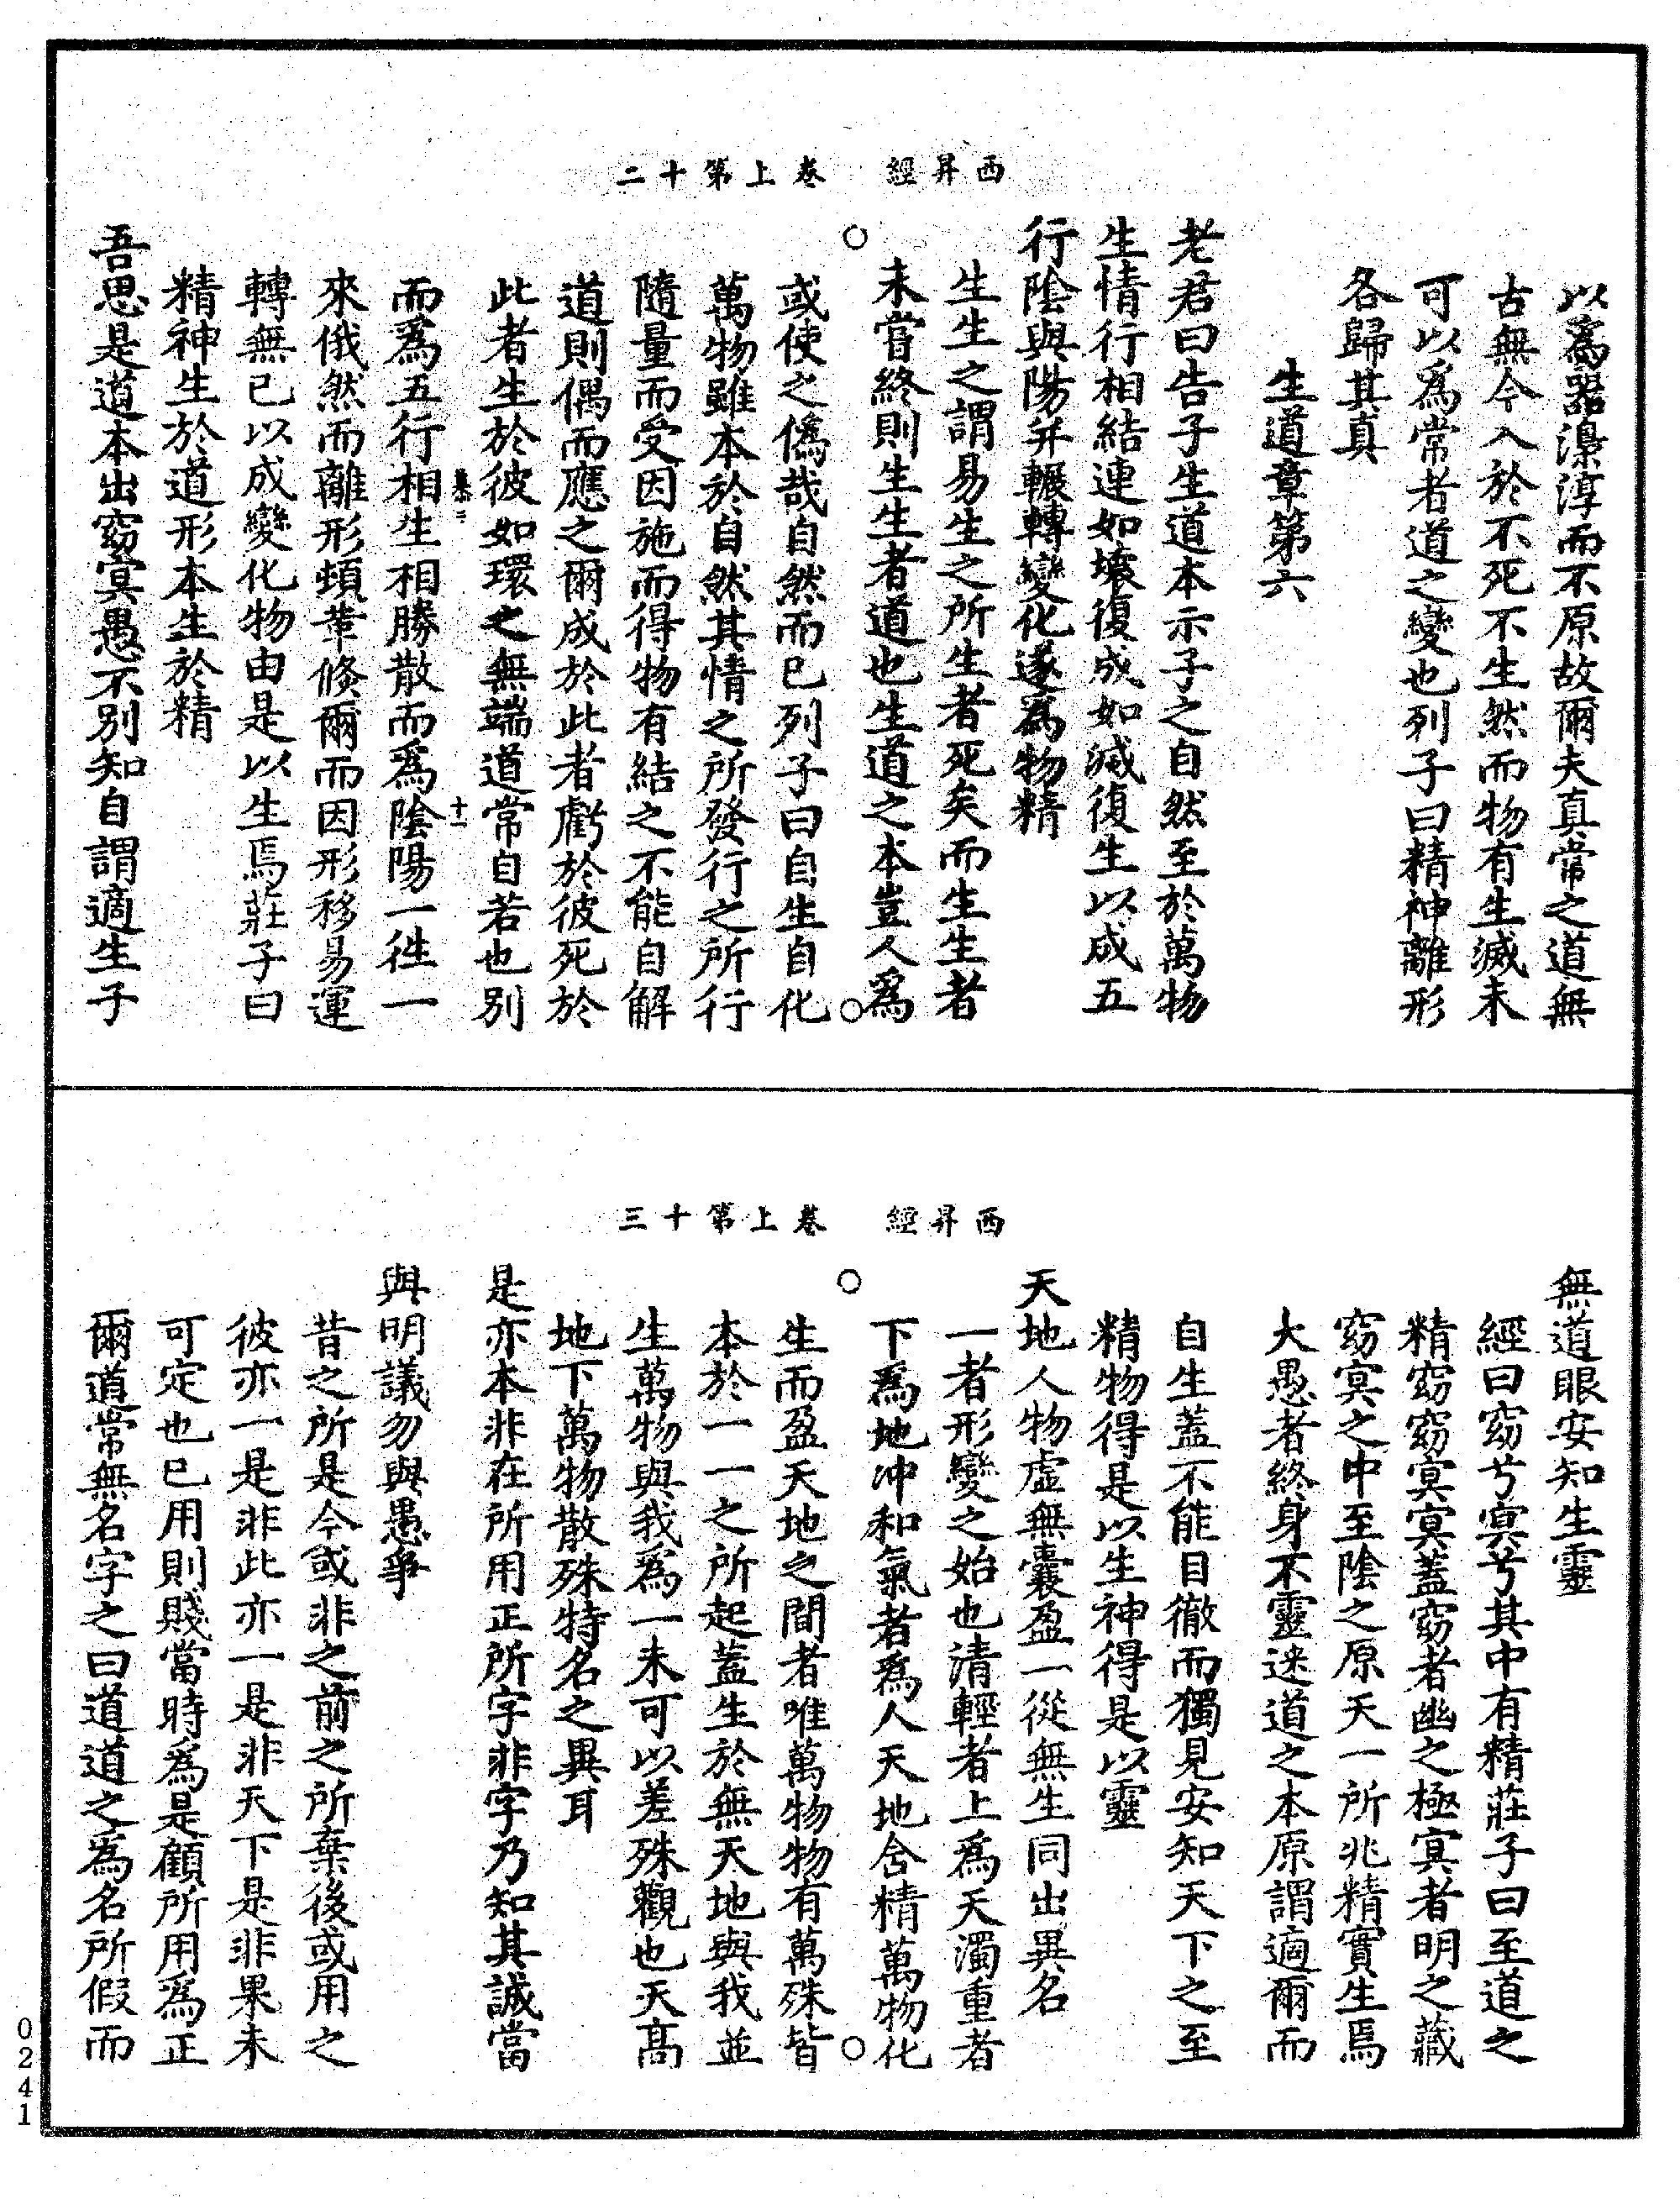 西昇經　卷上第十二
以爲器澡淳而不原故爾夫真常之道無
古無今入於不死不生然而物有生滅未
可以爲常者道之變也列子曰精神離形
各歸其真
生道章第六
老君曰告子生道本示子之自然至於萬物
生情行相結連如壞復成如滅復生以成五
行陰與陽并輾轉變化遂爲物精
生生之謂易生之所生者死矣而生生者
未嘗終則生生者道也生道之本豈人爲
或使之僞哉自然而已列子曰自生自化
萬物雖本於自然其情之所發行之所行
隨量而受因施而得物有結之不能自解
道則偶而應之爾成於此者虧於彼死於
此者生於彼如環之無端道常自若也別
十一
而爲五行相生相勝散而爲陰陽一徃一
來俄然而離形頓革倏爾而因形移易運
轉無已以成變化物由是以生焉莊子曰
精神生於道形本生於精
吾思是道本出窈冥愚不別知自謂適生子
西昇經　卷上第十三
無道眼安知生靈
經曰窈兮冥兮其中有精莊子曰至道之
精窈窈冥冥蓋窈者幽之極冥者明之藏
窈冥之中至陰之原天一所兆精實生焉
大愚者終身不靈迷道之本原謂適爾而
自生蓋不能目徹而獨見安知天下之至
精物得是以生神得是以靈
天地人物虛無囊盈一從無生同出異名
一者形變之始也清輕者上爲天濁重者
下爲地冲和氣者爲人天地含精萬物化
生而盈天地之間者唯萬物物有萬殊皆
本於一一之所起蓋生於無天地與我並
生萬物與我爲一未可以差殊觀也天高
地下萬物散殊特名之異耳
是亦本非在所用正所字非字乃知其誠當
與明議勿與愚爭
昔之所是今或非之前之所棄後或用之
彼亦一是非此亦一是非天下是非果未
可定也已用則賤當時爲是顧所用爲正
爾道常無名字之曰道道之爲名所假而
0241